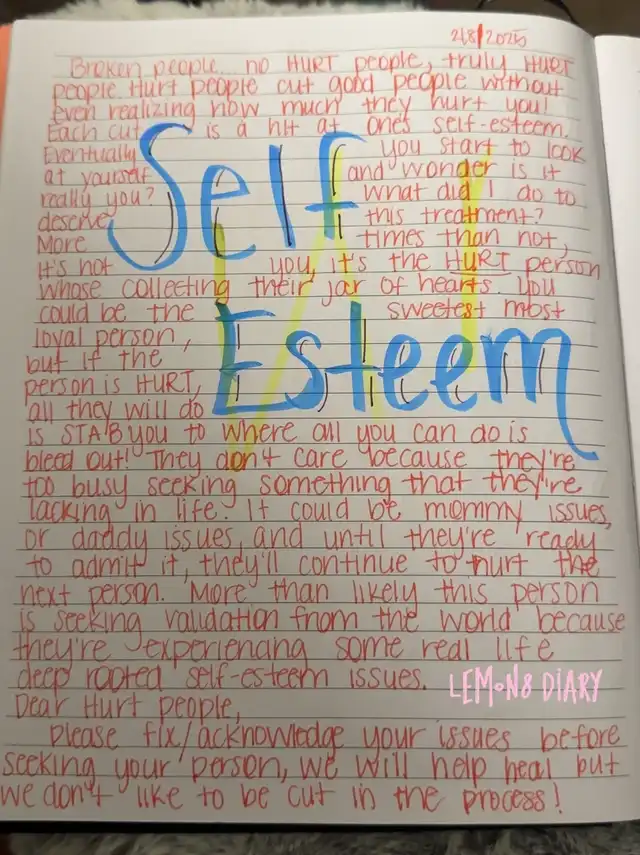 2/8/2025
Broken people... no HURT people, truly HURT
people Hurt people cut good people without
even realizing how much they hurt you!
Each cut is a hit at ones self-esteem.
Eventually you start to look
at yourself and wonder is it
really you? What did I do to
deserve this treatment?
More times than not,
it's not you, it's the HURT person
whose collecting their jar of hearts. You
could be the sweetest most
loyal person,
but if the
person is HURT,
all they will do
Self
Esteem
is STAB you to where all you can do is
bleed out! They don't care because they're
too busy seeking something that they're
lacking in life. It could be mommy issues,
or daddy issues, and until they're ready
to admit it, they'll continue to hurt the
next person. More than likely this person
is seeking validation from the world because
they're experiencing some real life
deep rooted self-esteem issues.
LEMON8 DIARY
Dear Hurt people,
Please fix/acknowledge your issues before
seeking your person, we will help heal but
we don't like to be cut in the process!